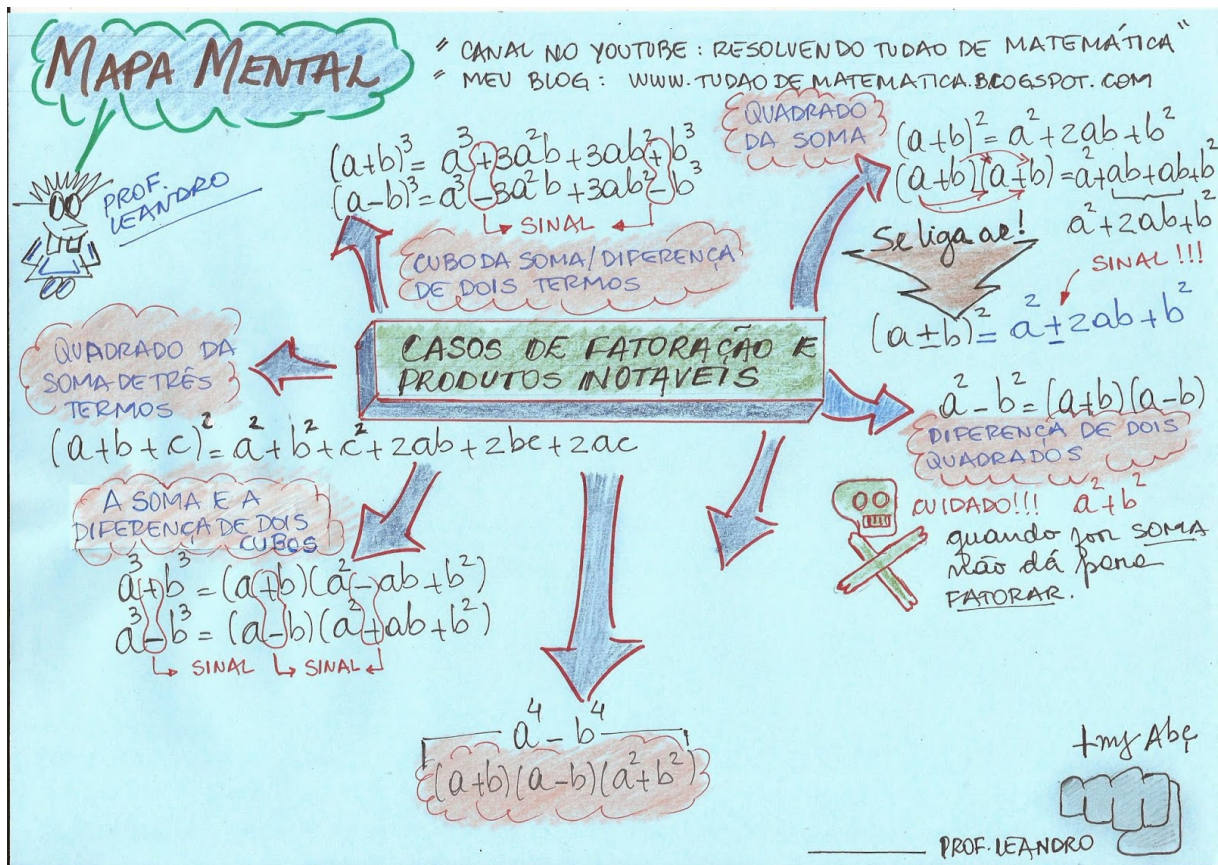 MAPA MENTAL
" CANAL NO YOUTUBE : RESOLVENDO TUDAO DE MATEMÁTICA "
" MEU BLOG : WWW.TUDAODEMATEMATICA.BLOGSPOT.COM
PROF.
LEANDRO
(a+b)³ = a³+3a²b+3ab²+b³
(a-b)³ = a³-3a²b+3ab²-b³
SINAL
CUBO DA SOMA/DIFERENÇA
DE DOIS TERMOS
QUADRADO
DA SOMA
(a+b)² = a²+2ab+b²
(a+b)(a+b) = a²+ab+ab+b²
a²+2ab+b²
Se liga ae!
SINAL!!!
(a±b)² = a²±2ab+b²
CASOS DE FATORAÇÃO E
PRODUTOS NOTAVEIS
QUADRADO DA
SOMA DE TRÊS
TERMOS
(a+b+c)² = a²+b²+c²+2ab+2bc+2ac
a²-b² = (a+b)(a-b)
DIFERENÇA DE DOIS
QUADRADOS
CUIDADO!!! a²+b²
quando for SOMA
não dá para
FATORAR.
A SOMA E A
DIFERENÇA DE DOIS
CUBOS
a³+b³ = (a+b)(a²-ab+b²)
a³-b³ = (a-b)(a²+ab+b²)
SINAL SINAL
a⁴-b⁴
(a+b)(a-b)(a²+b²)
PROF. LEANDRO